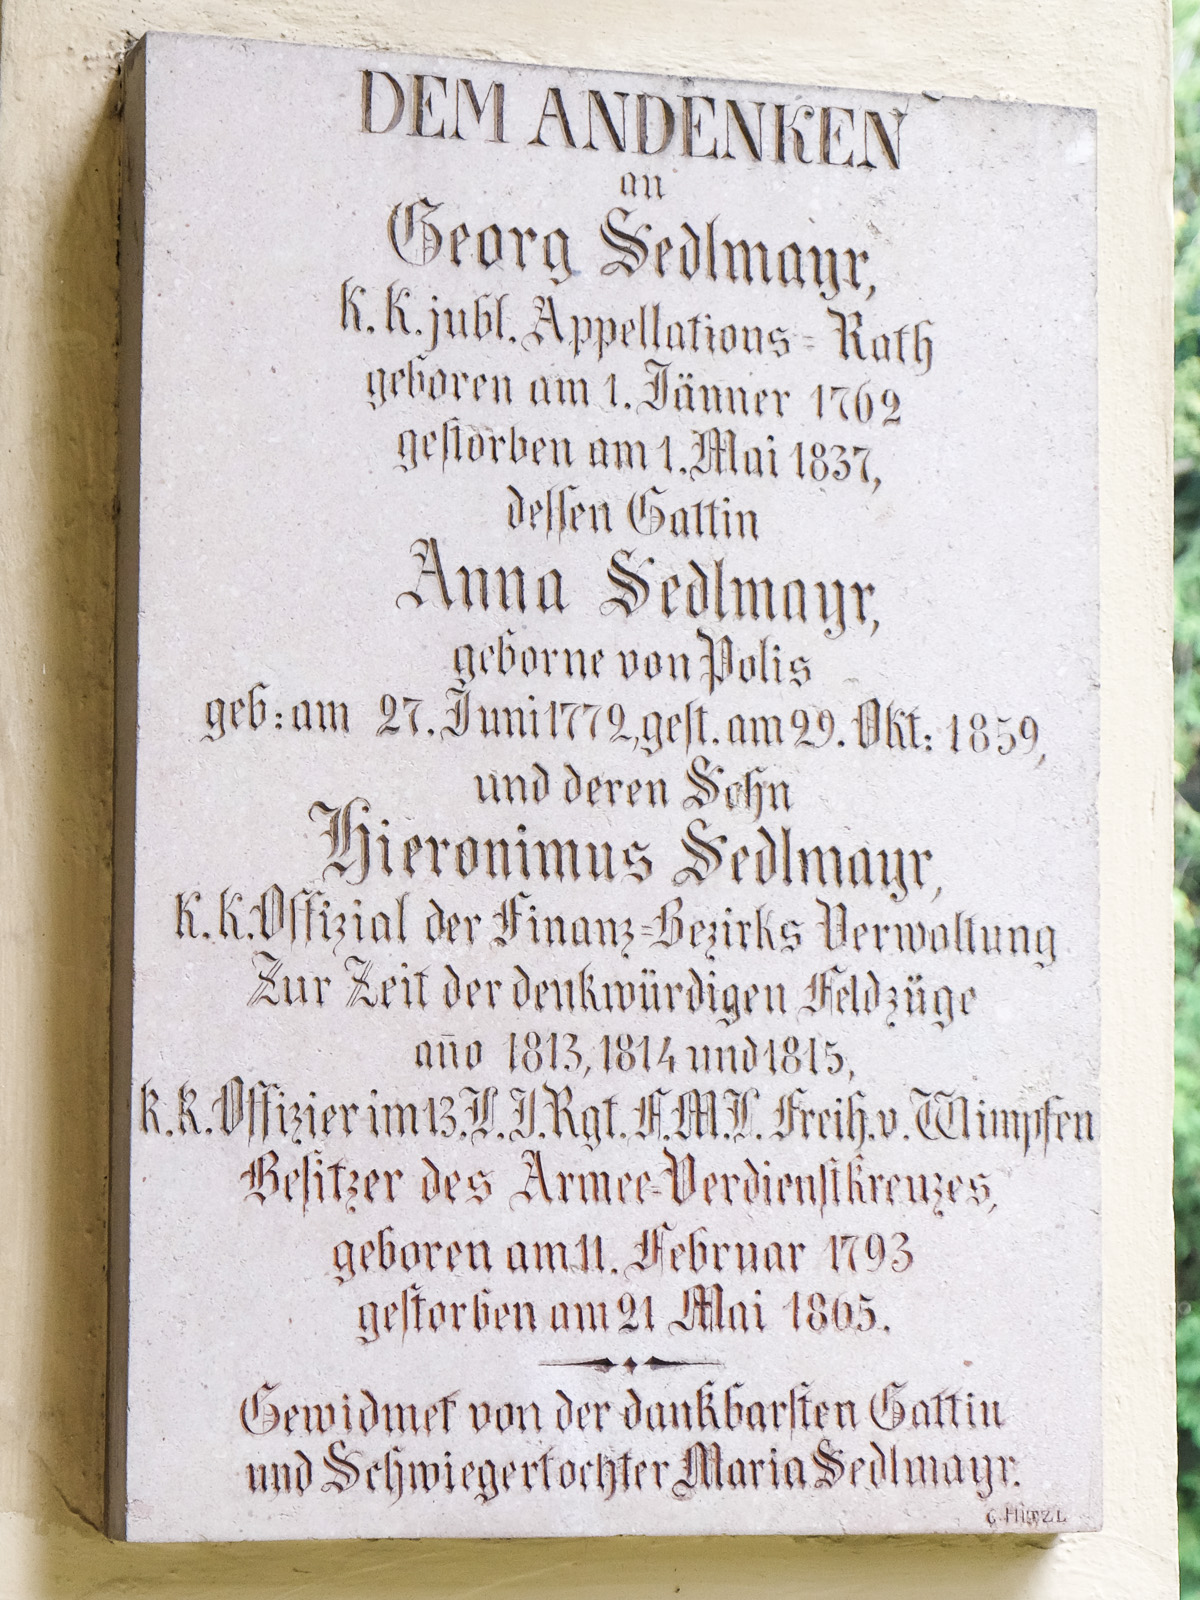 DEM ANDENKEN
an
Georg Sedlmayr,
k. k. jubl. Appellations=Rath
geboren am 1. Jänner 1762
gestorben am 1. Mai 1837,
dessen Gattin
Anna Sedlmayr,
geborne von Polis
geb: am 27. Juni 1772, gest. am 29. Okt: 1859,
und deren Sohn
Hieronimus Sedlmayr,
k. k. Offizial der Finanz=Bezirks Verwaltung
Zur Zeit der denkwürdigen Feldzüge
año 1813, 1814 und 1815,
k. k. Offizier im 13. L. I. Rgt. F. M. L. Freih. v. Wimpfen
Besitzer des Armee=Verdienstkreuzes,
geboren am 11. Februar 1793
gestorben am 21 Mai 1865.
Gewidmet von der dankbarsten Gattin
und Schwiegertochter Maria Sedlmayr.